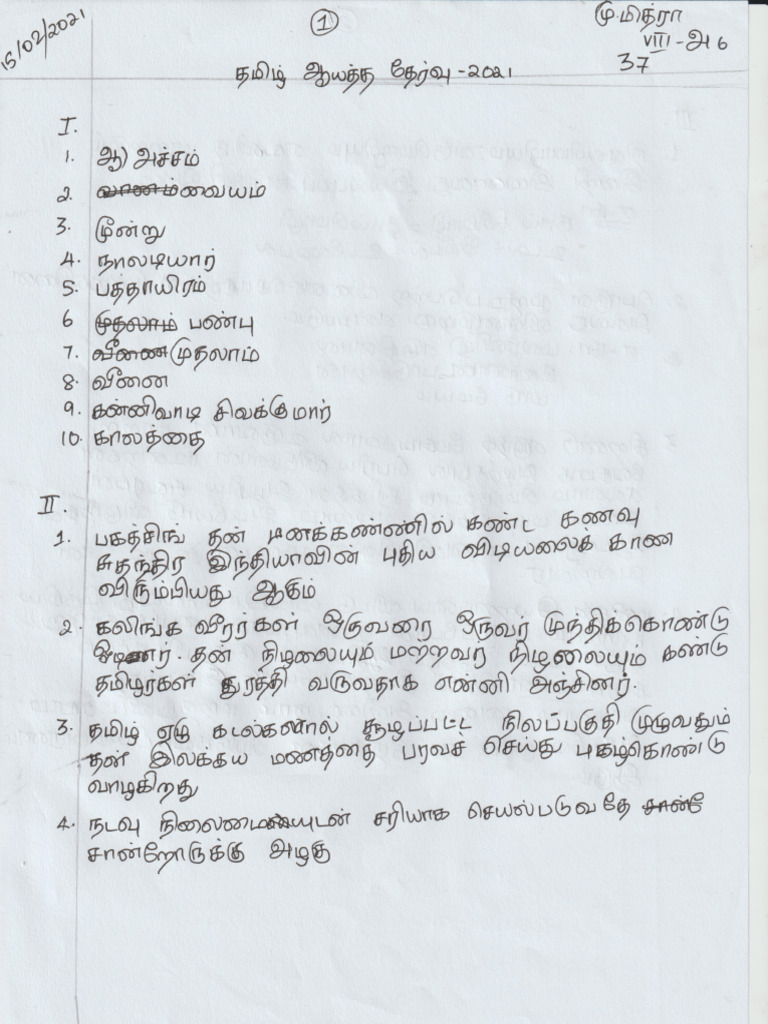 15/02/2021
1
மு.மித்ரா
VIII - அ 6
37
தமிழ் ஆயத்த தேர்வு - 2021
I.
1. ஆ) அச்சம்
2. வானம் வையம்
3. மூன்று
4. நாலடியார்
5. பத்தாயிரம்
6 முதலாம் பண்பு
7. வீணை முதலாம்
8. வீணை
9. கன்னிவாடி சிவக்குமார்
10. காலத்தை
II.
1. பகத்சிங் தன் மனக்கண்ணில் கண்ட கனவு
சுதந்திர இந்தியாவின் புதிய விடியலைக் காண
விரும்பியது ஆகும்
2. கலிங்க வீரர்கள் ஒருவரை ஒருவர் முந்திக்கொண்டு
ஓடினர். தன் நிழலையும் மற்றவர் நிழலையும் கண்டு
தமிழர்கள் துரத்தி வருவதாக என்னி அஞ்சினர்.
3. தமிழ் ஏழு கடல்களால் சூழப்பட்ட நிலப்பகுதி முழுவதும்
தன் இலக்கய மணத்தை பரவச் செய்து புகழ்கொண்டு
வாழகிறது
4. நடவு நிலைமையுடன் சரியாக செயல்படுவதே சான்றே
சான்றோருக்கு அழகு